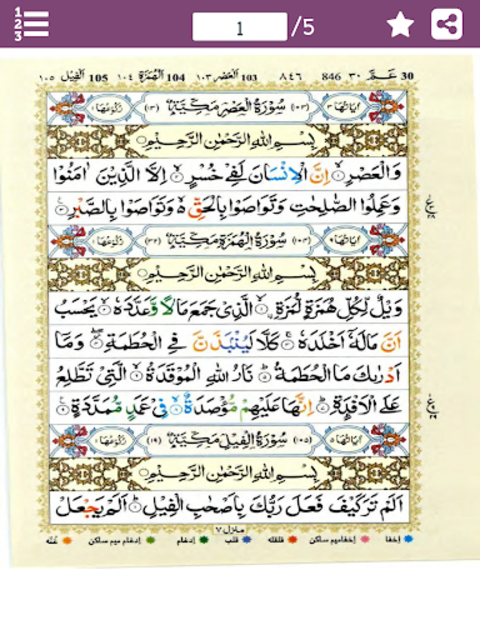 1 2 3
1 /5
30 عَمَّ ٣٠ 846 ٨٤٦ 103 العصر ١٠٣ 104 الهمزة ١٠٤ 105 الفيل ١٠٥
اٰيَاتُهَا ٣ (١٠٣) سُوْرَةُ الْعَصْرِ مَكِّيَّةٌ (١٣) رُكُوْعُهَا ١
بِسْمِ اللّٰهِ الرَّحْمٰنِ الرَّحِيْمِ
وَالْعَصْرِ ۙ اِنَّ الْاِنْسَانَ لَفِيْ خُسْرٍ ۙ اِلَّا الَّذِيْنَ اٰمَنُوْا
وَعَمِلُوا الصّٰلِحٰتِ وَتَوَاصَوْا بِالْحَقِّ ۙ وَتَوَاصَوْا بِالصَّبْرِ
اٰيَاتُهَا ٩ (١٠٤) سُوْرَةُ الْهُمَزَةِ مَكِّيَّةٌ (٣٢) رُكُوْعُهَا ١
بِسْمِ اللّٰهِ الرَّحْمٰنِ الرَّحِيْمِ
وَيْلٌ لِّكُلِّ هُمَزَةٍ لُّمَزَةِ ۙ الَّذِيْ جَمَعَ مَالًا وَّعَدَّدَهٗ ۙ يَحْسَبُ
اَنَّ مَالَهٗۤ اَخْلَدَهٗ ۚ كَلَّا لَيُنْۢبَذَنَّ فِي الْحُطَمَةِ ۖ وَمَاۤ
اَدْرٰىكَ مَا الْحُطَمَةُ ؕ نَارُ اللّٰهِ الْمُوْقَدَةُ ۙ الَّتِيْ تَطَّلِعُ
عَلَى الْاَفْـِٕدَةِ ؕ اِنَّهَا عَلَيْهِمْ مُّؤْصَدَةٌ ۙ فِيْ عَمَدٍ مُّمَدَّدَةٍ
اٰيَاتُهَا ٥ (١٠٥) سُوْرَةُ الْفِيْلِ مَكِّيَّةٌ (١٩) رُكُوْعُهَا ١
بِسْمِ اللّٰهِ الرَّحْمٰنِ الرَّحِيْمِ
اَلَمْ تَرَ كَيْفَ فَعَلَ رَبُّكَ بِاَصْحٰبِ الْفِيْلِ ؕ اَلَمْ يَجْعَلْ
منزل ٧
إخفا إخفا ميم ساكن قلقله قلب إدغام إدغام ميم ساكن غنّه